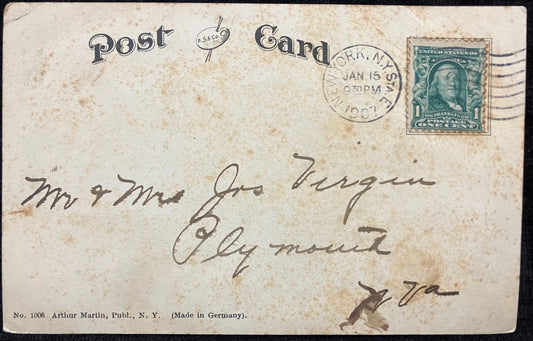 Post Card
A.S.&Co.
NEW YORK, N.Y. STA. E.
JAN 15
930PM
1907
UNITED STATES OF
AMERICA
1 1
FRANKLIN
POSTAGE
ONE CENT
Mr & Mrs Jos Virgin
Plymouth
W Va
No. 1006 Arthur Martin, Publ., N. Y. (Made in Germany).